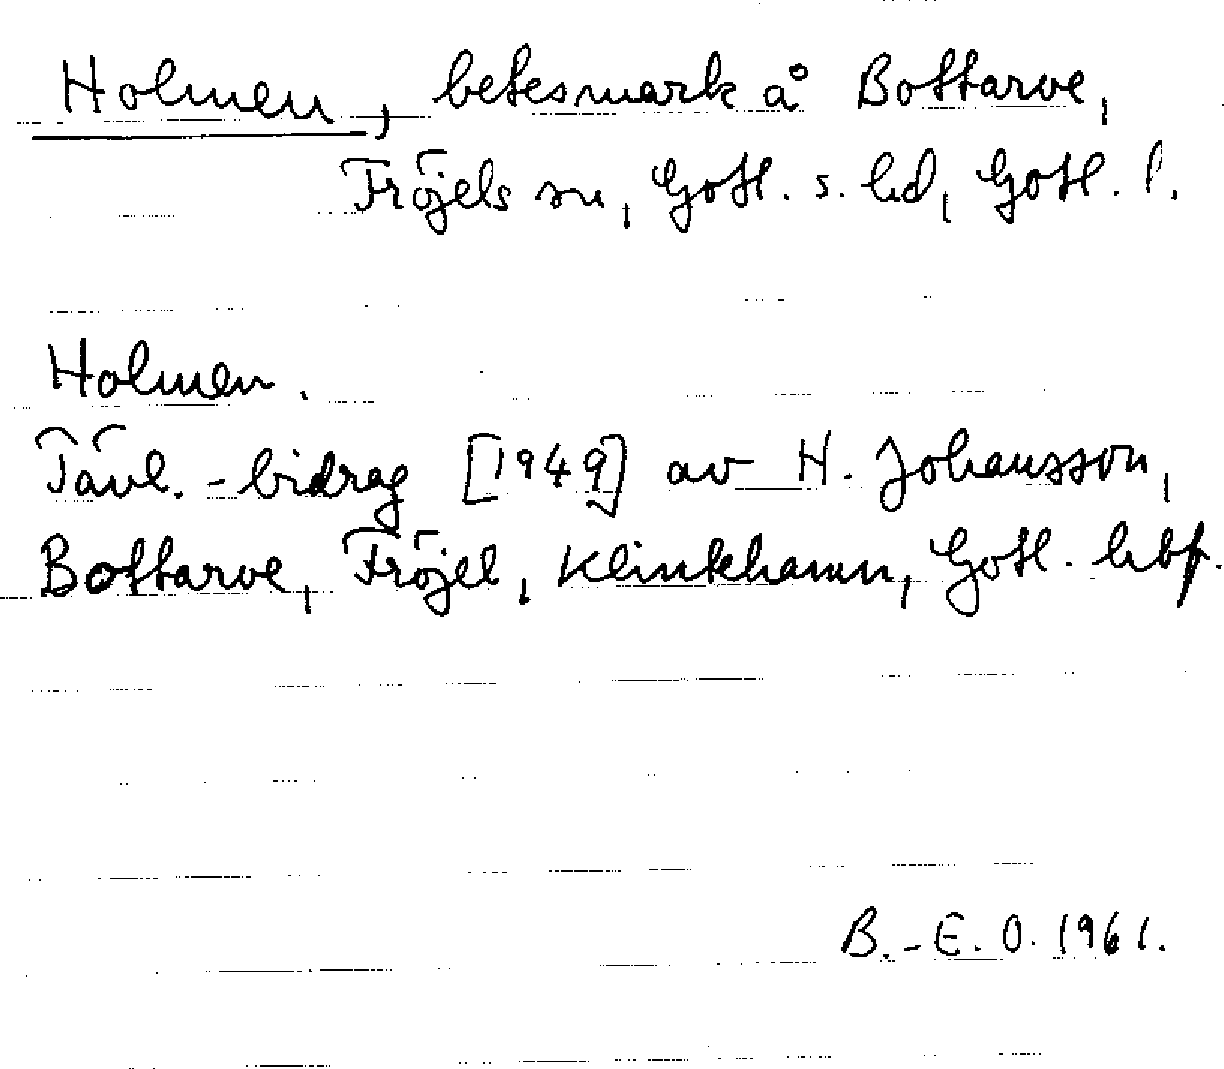 Holmen, betesmark å Bottarve,
Fröjels sn, Gotl. s. hd, Gotl. l.
Holmen.
Tävl.-bidrag [1949] av H. Johansson,
Bottarve, Fröjel, Klintehamn, Gotl. lbf.
B.-E. O. 1961.